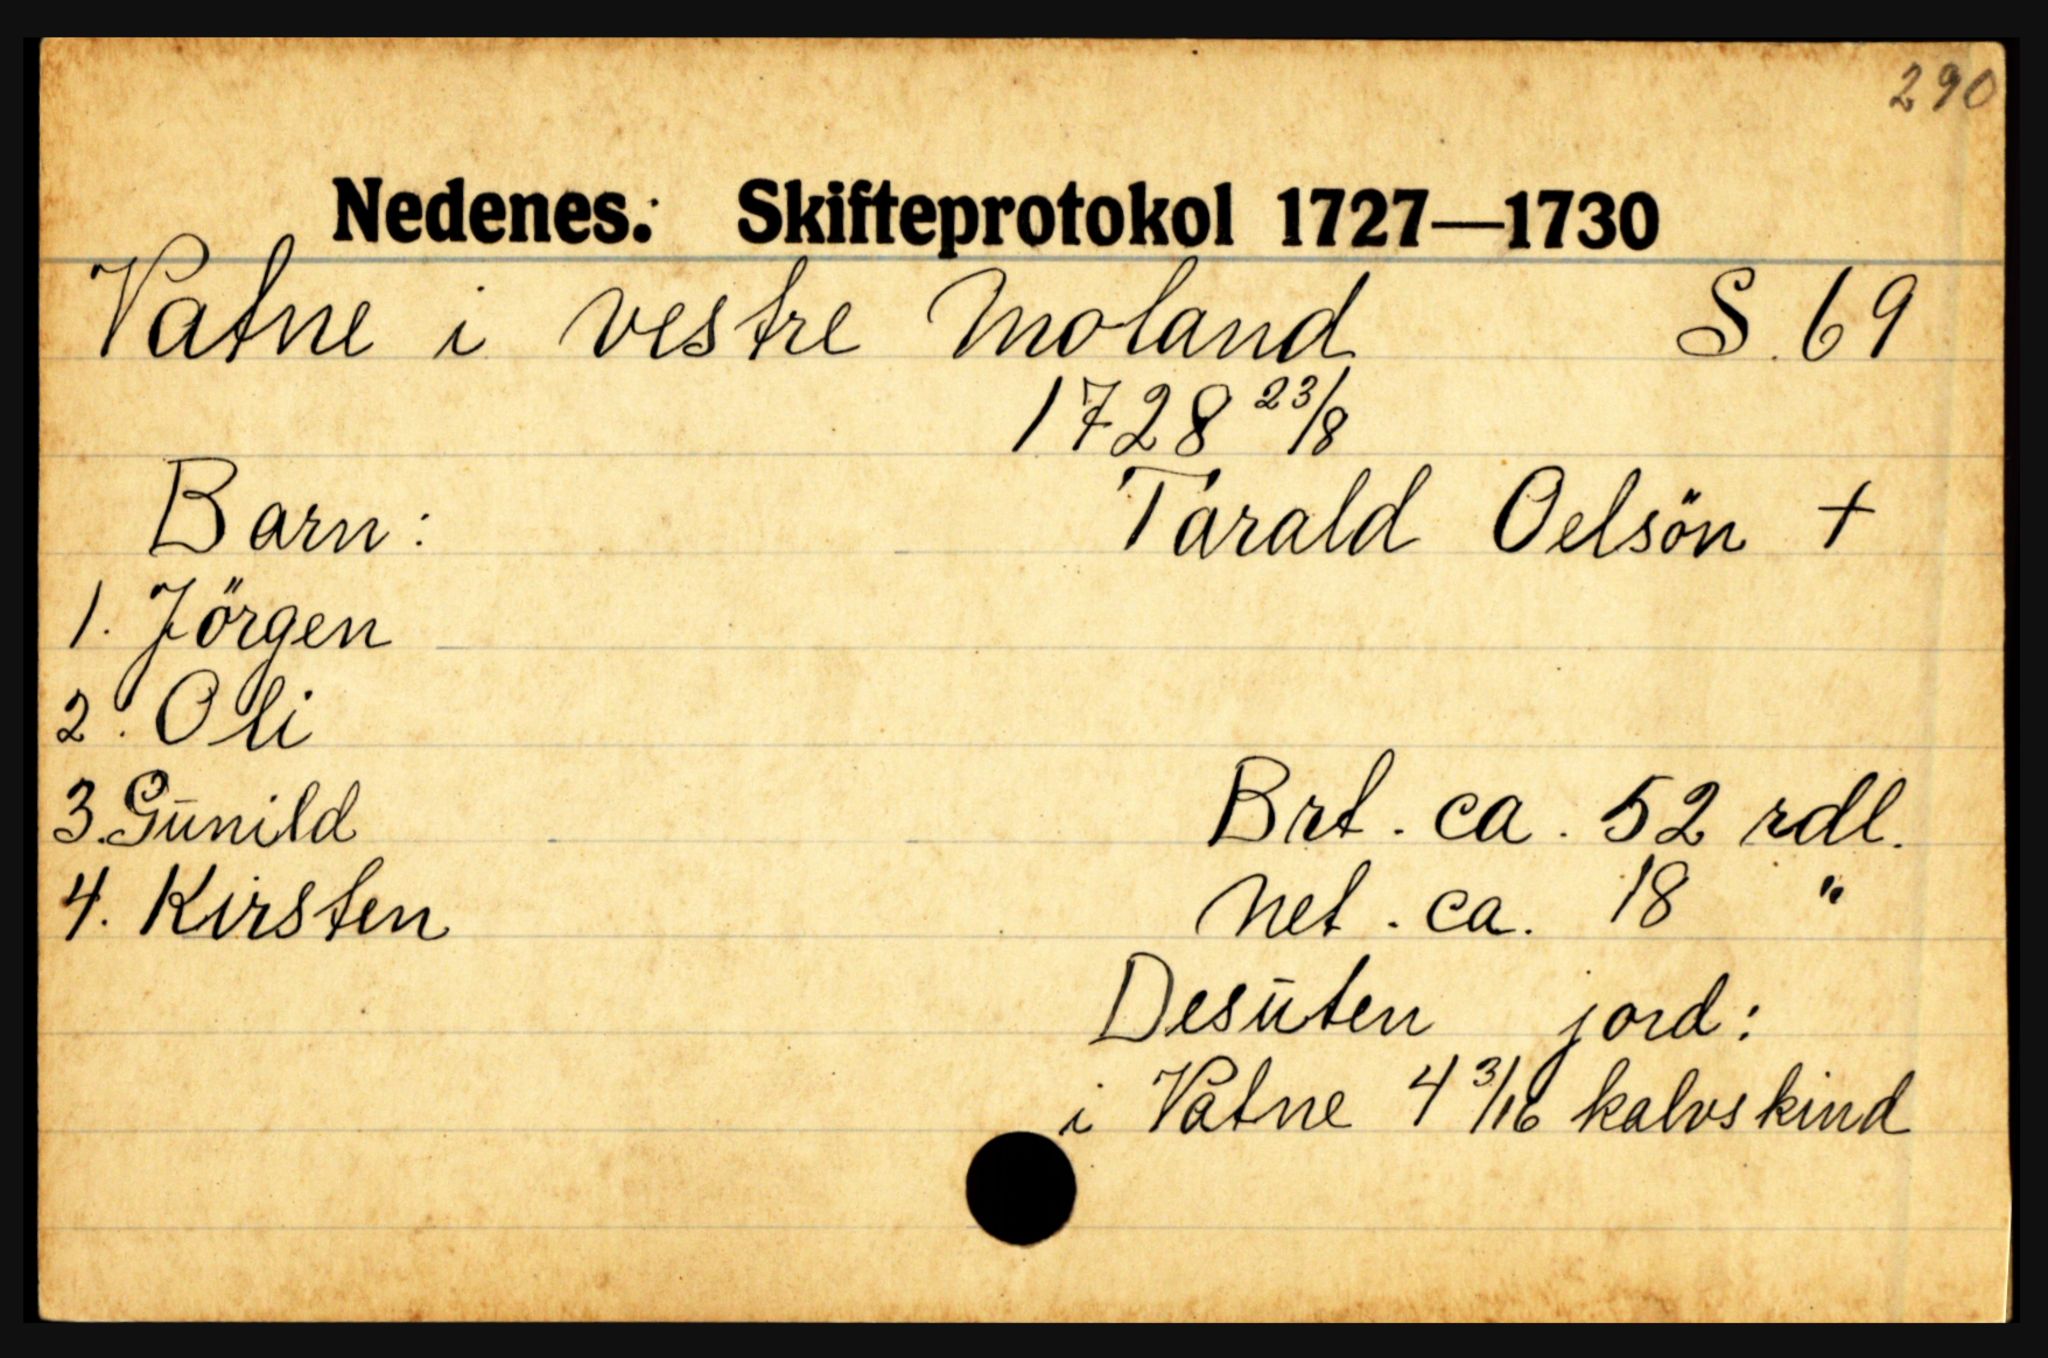 290
Nedenes: Skifteprotokol 1727—1730
Vatne i vestre Moland S. 69
1728 23/8
Barn: Tarald Oelsön +
1. Jörgen
2. Oli
3. Gūnild Brt. ca. 52 rdl.
4. Kirsten Net. ca. 18 "
Desūten jord:
i Vatne 4 3/16 kalvskind